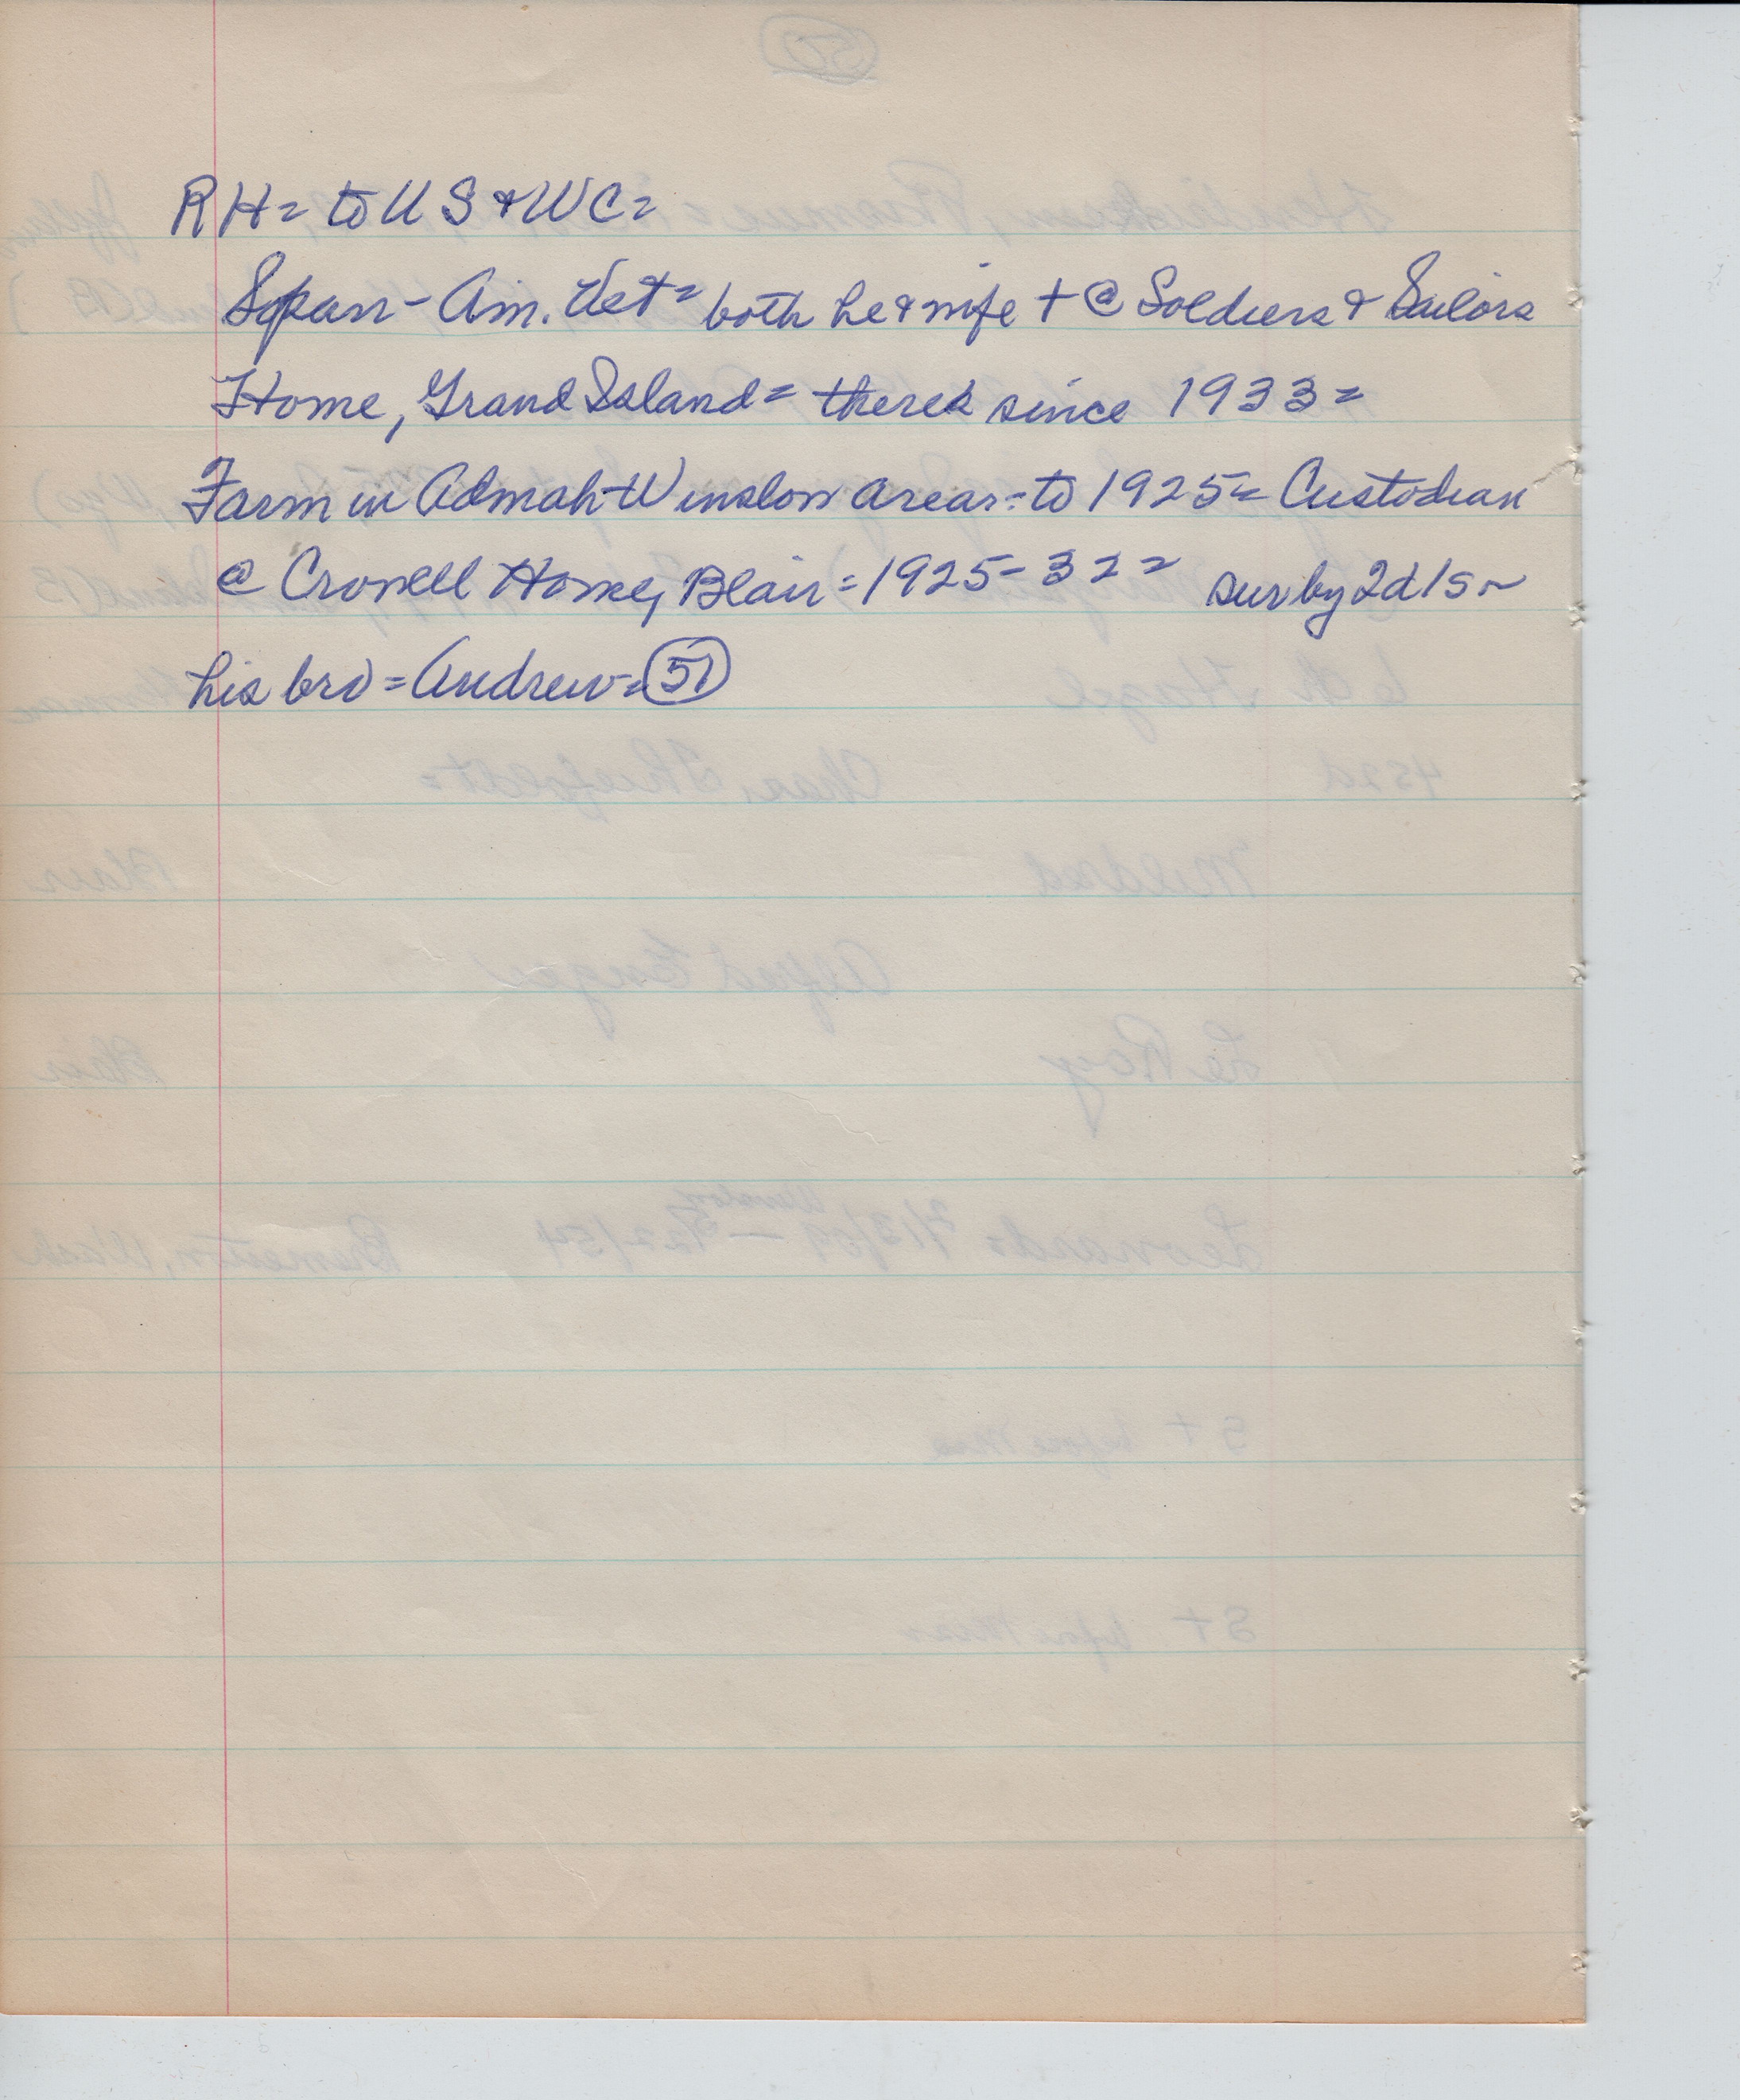 RH = to US & WC =
Span-Am. Vet = both he & wife + @ Soldiers & Sailors
Home, Grand Island = there since 1933 =
Farm in Admah-Winslow area = to 1925 = Custodian
@ Crowell Home, Blair = 1925-32 = sur by 2d 1s ~
his bro = Andrew = 51